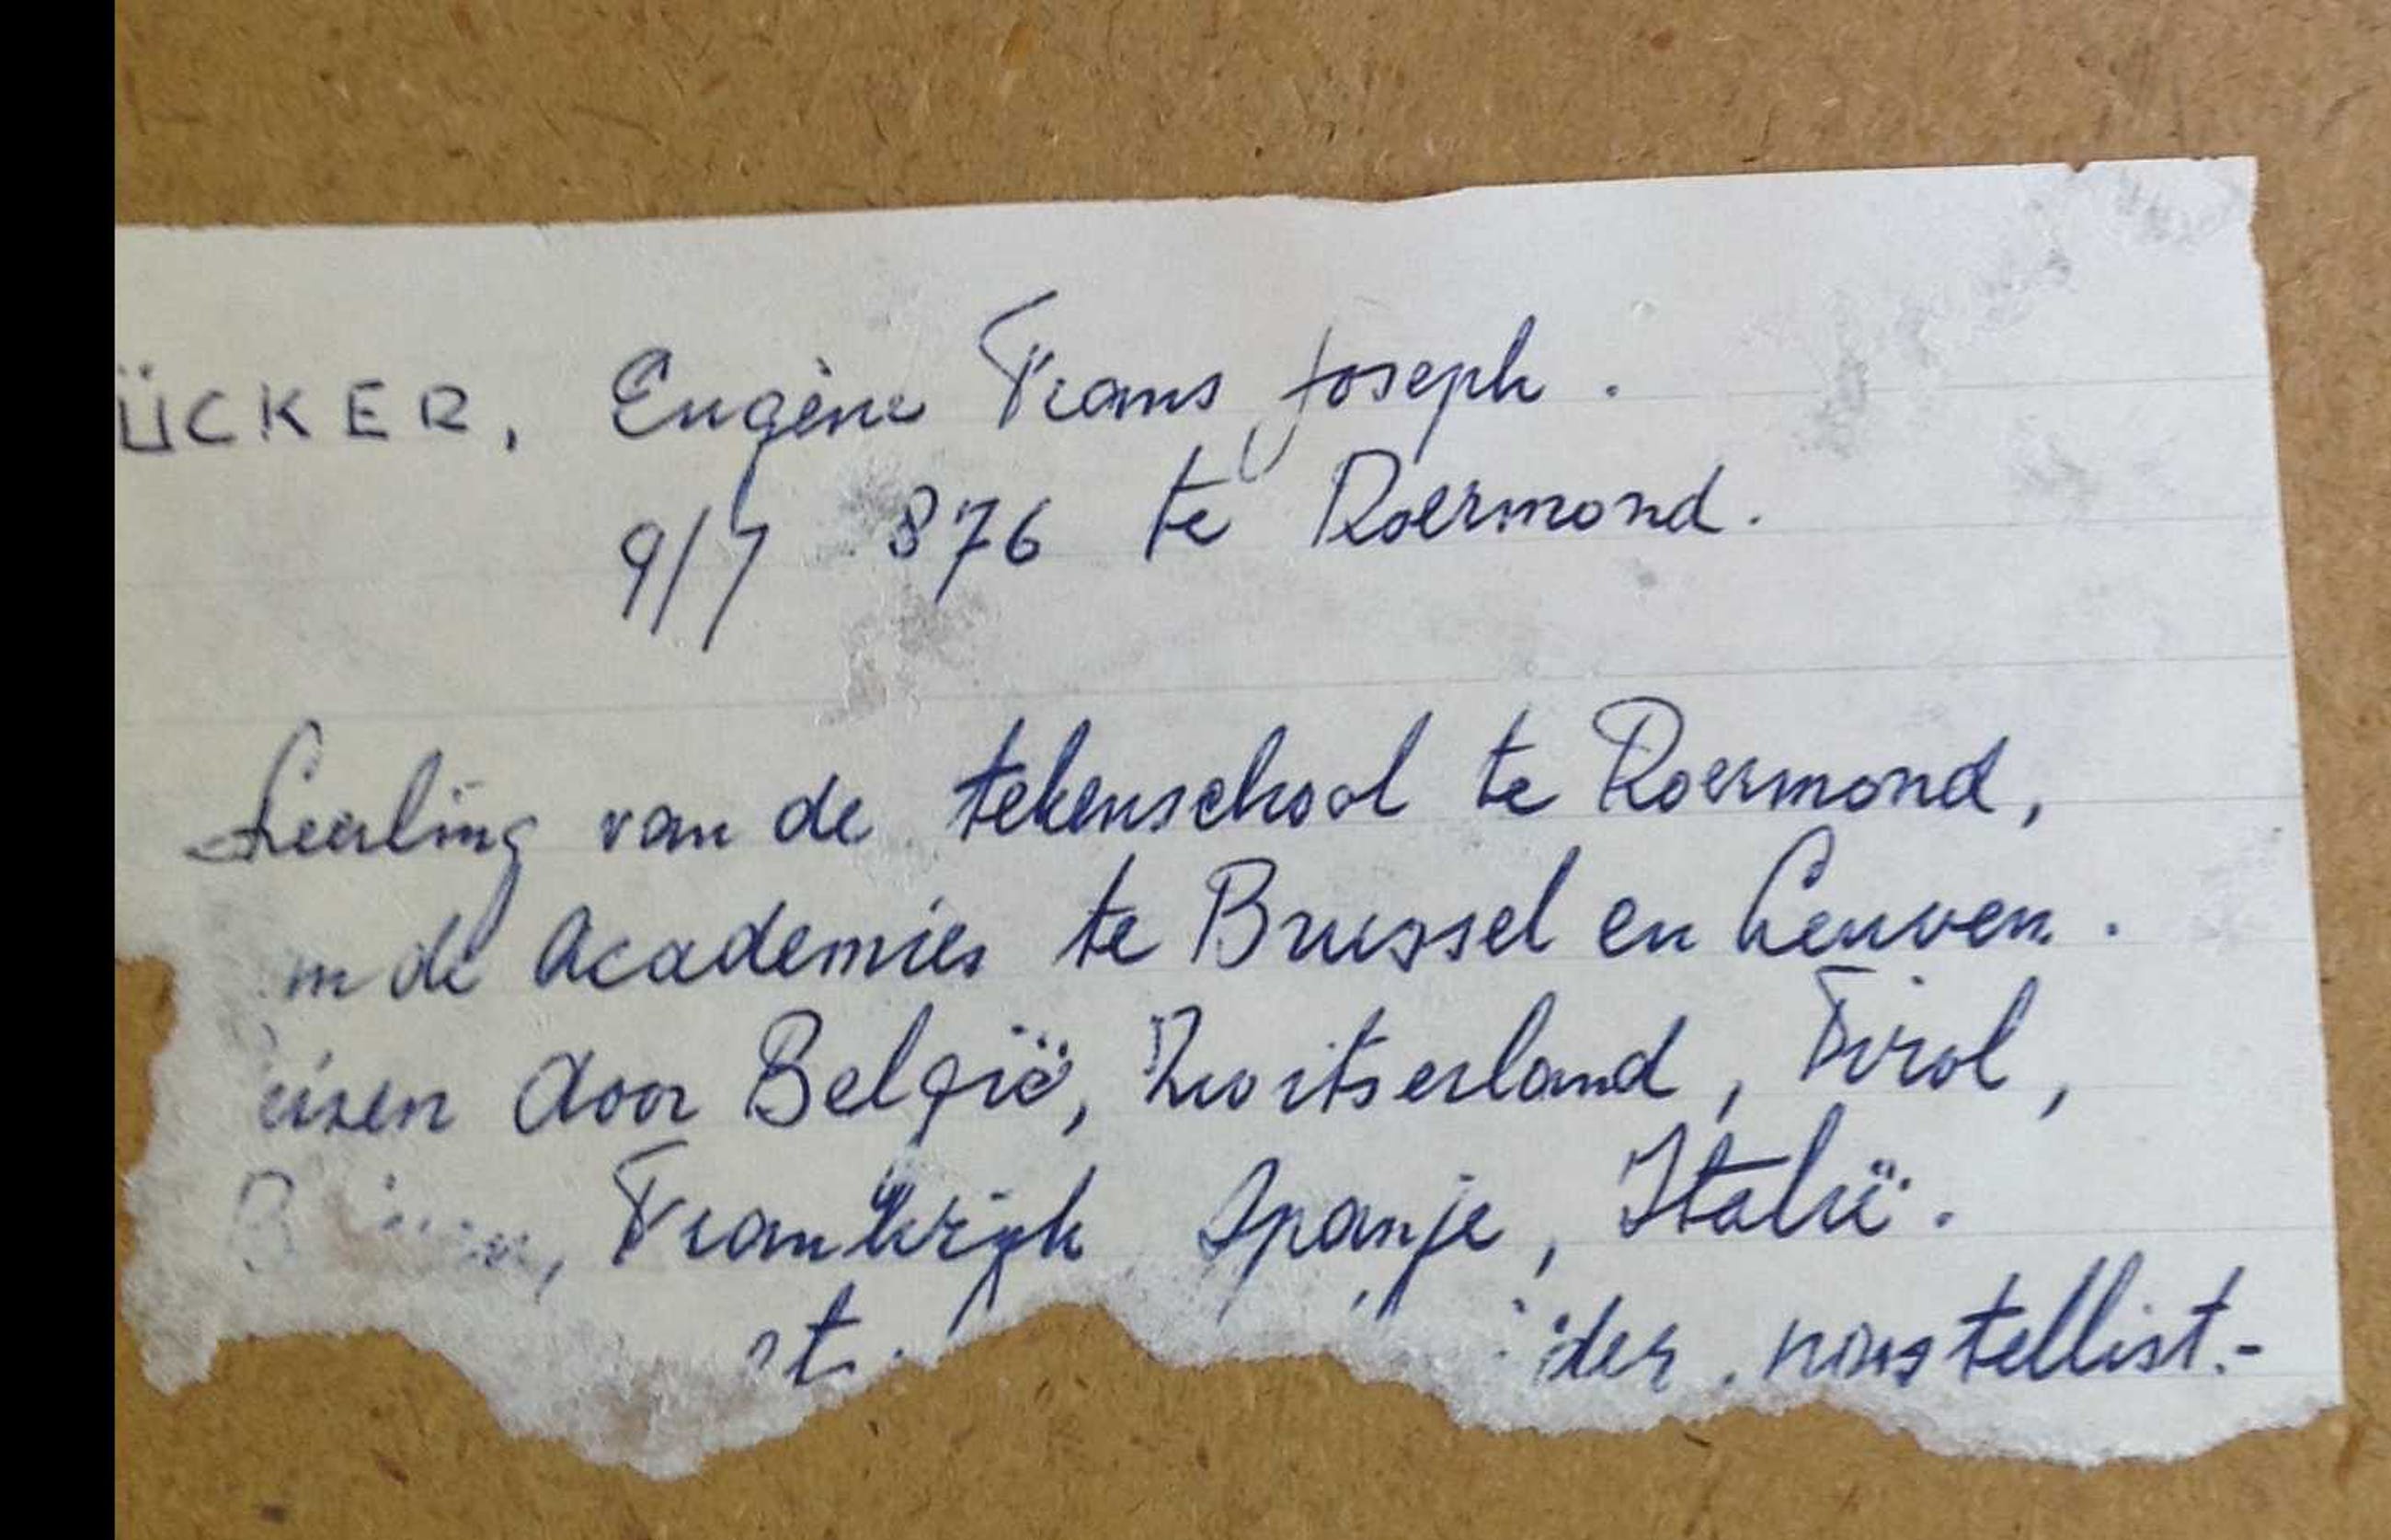 ÜCKER, Eugène Frans Joseph.
9/7 876 te Roermond.
Leerling van de tekenschool te Roermond,
de Academies te Brussel en Leuven.
eizen door België, Zwitserland, Tirol,
Frankrijk Spanje, Italië.